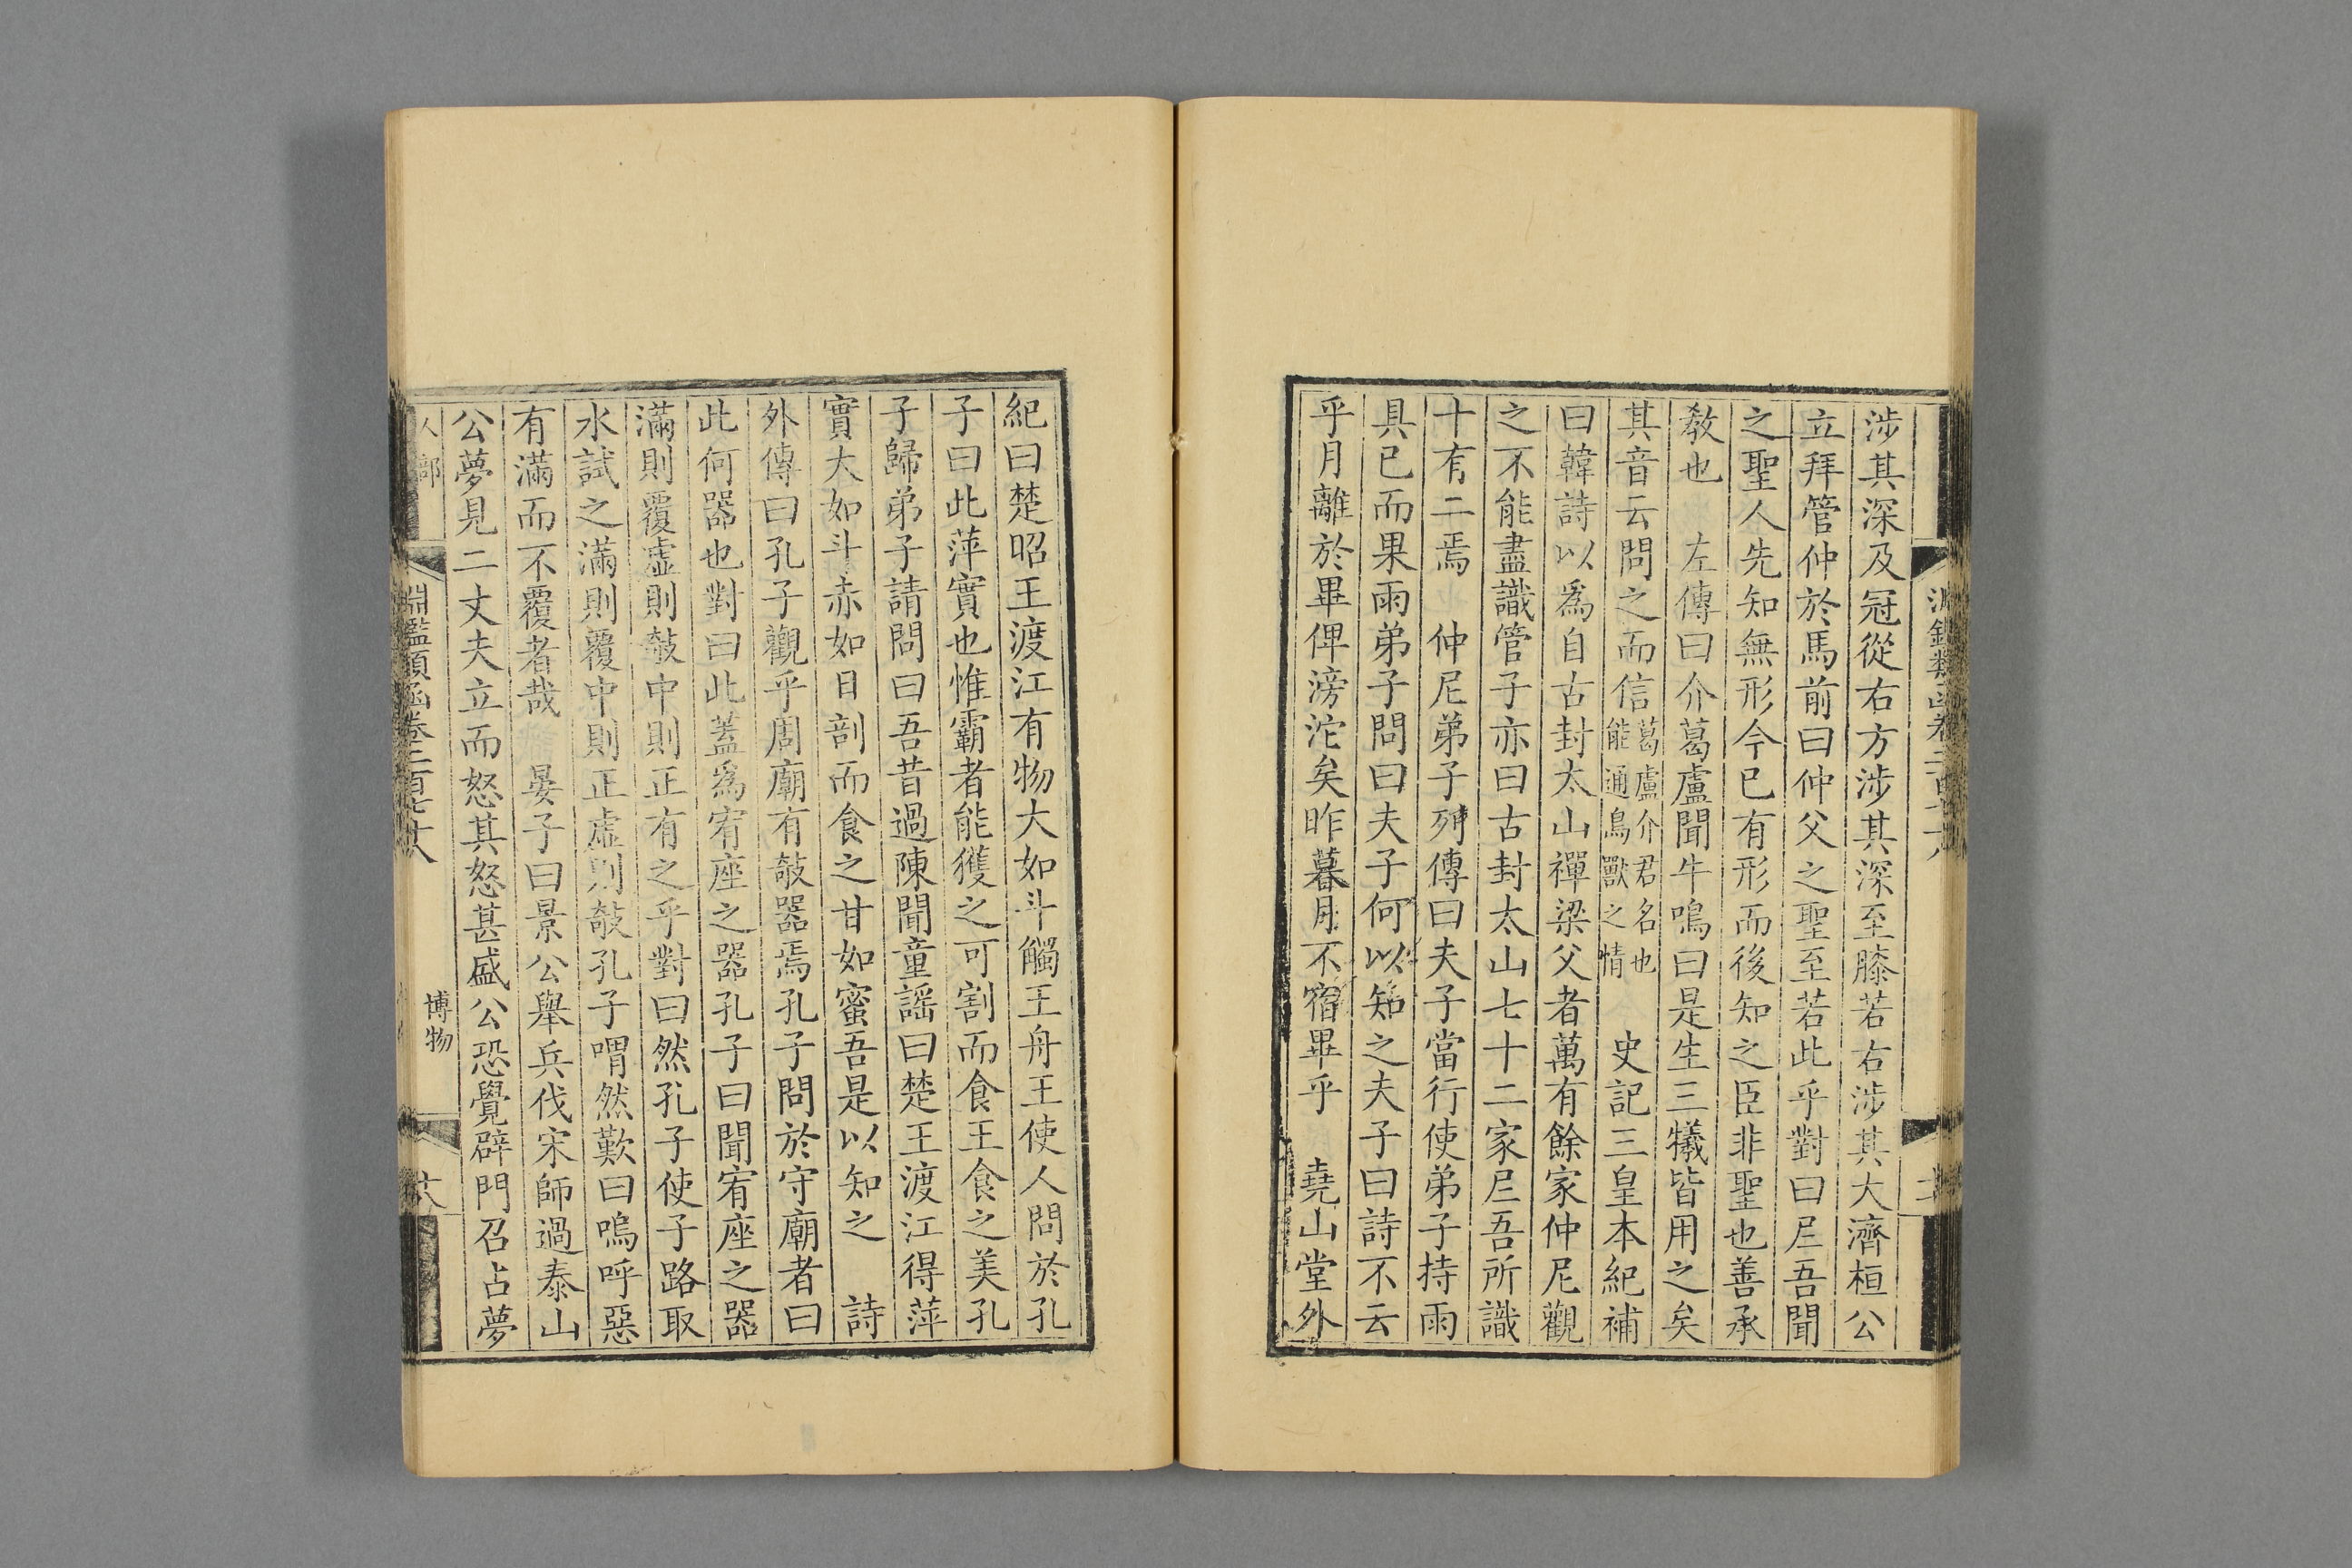 涉其深及冠從右方涉其深至膝若右涉其大濟桓公
立拜管仲於馬前曰仲父之聖至若此乎對曰𡰥吾聞
之聖人先知無形今已有形而後知之臣非聖也善承
教也　左傳曰介葛盧聞牛鳴曰是生三犧皆用之矣
其音云問之而信葛盧介君名也能通鳥獸之情　史記三皇本紀補
曰韓詩以爲自古封太山禪梁父者萬有餘家仲尼觀
之不能盡識管子亦曰古封太山七十二家𡰥吾所識
十有二焉　仲尼弟子列傳曰夫子當行使弟子持雨
具已而果雨弟子問曰夫子何以知之夫子曰詩不云
乎月離於畢俾滂沱矣昨暮月不宿畢乎　堯山堂外
紀曰楚昭王渡江有物大如斗觸王舟王使人問於孔
子曰此萍實也惟霸者能獲之可割而食王食之美孔
子歸弟子請問曰吾昔過陳聞童謠曰楚王渡江得萍
實大如斗赤如日剖而食之甘如蜜吾是以知之　詩
外傳曰孔子觀乎周廟有攲器焉孔子問於守廟者曰
此何器也對曰此蓋爲宥座之器孔子曰聞宥座之器
滿則覆虛則攲中則正有之乎對曰然孔子使子路取
水試之滿則覆中則正虛則攲孔子喟然歎曰嗚呼惡
有滿而不覆者哉　晏子曰景公舉兵伐宋師過泰山
公夢見二丈夫立而怒其怒甚盛公恐覺辟門召占夢
人部
淵鑑類函卷三百廿八
博物